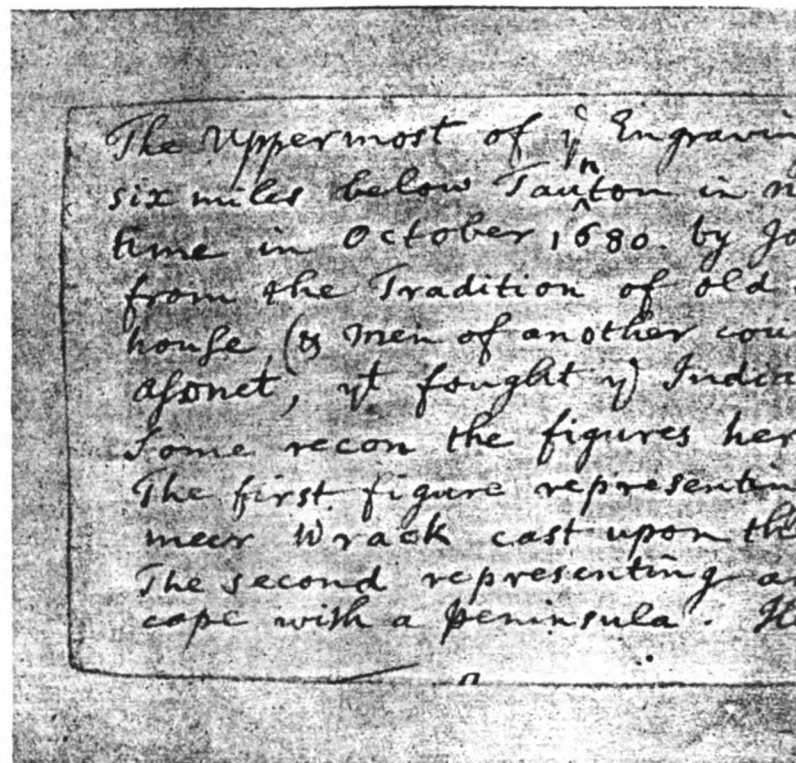 The Uppermost of yͤ Engravin
six miles below Tauⁿton in
time in October 1680. by Jo
from the Tradition of old
houſe, (& men of another cou
aſsonet, yᵗ fought yᵐ India
Some recon the figures her
The first figure representin
meer Wrack cast upon the
The second representing an
cape with a peninsula.